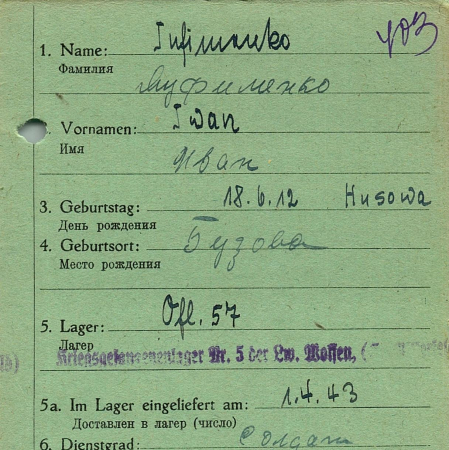 703
1. Name: Infimenko
Фамилия
Ануфименко
Vornamen: Iwan
Имя
Иван
3. Geburtstag: 18.6.12 Husowa
День рождения
4. Geburtsort: Бузова
Место рождения
5. Lager: Ofl. 57
Лагер
Kriegsgefangenenlager Nr. 5 der Lw. Waffen,
5a. Im Lager eingeliefert am: 1.4.43
Доставлен в лагер (число)
6. Dienstgrad: Солдат